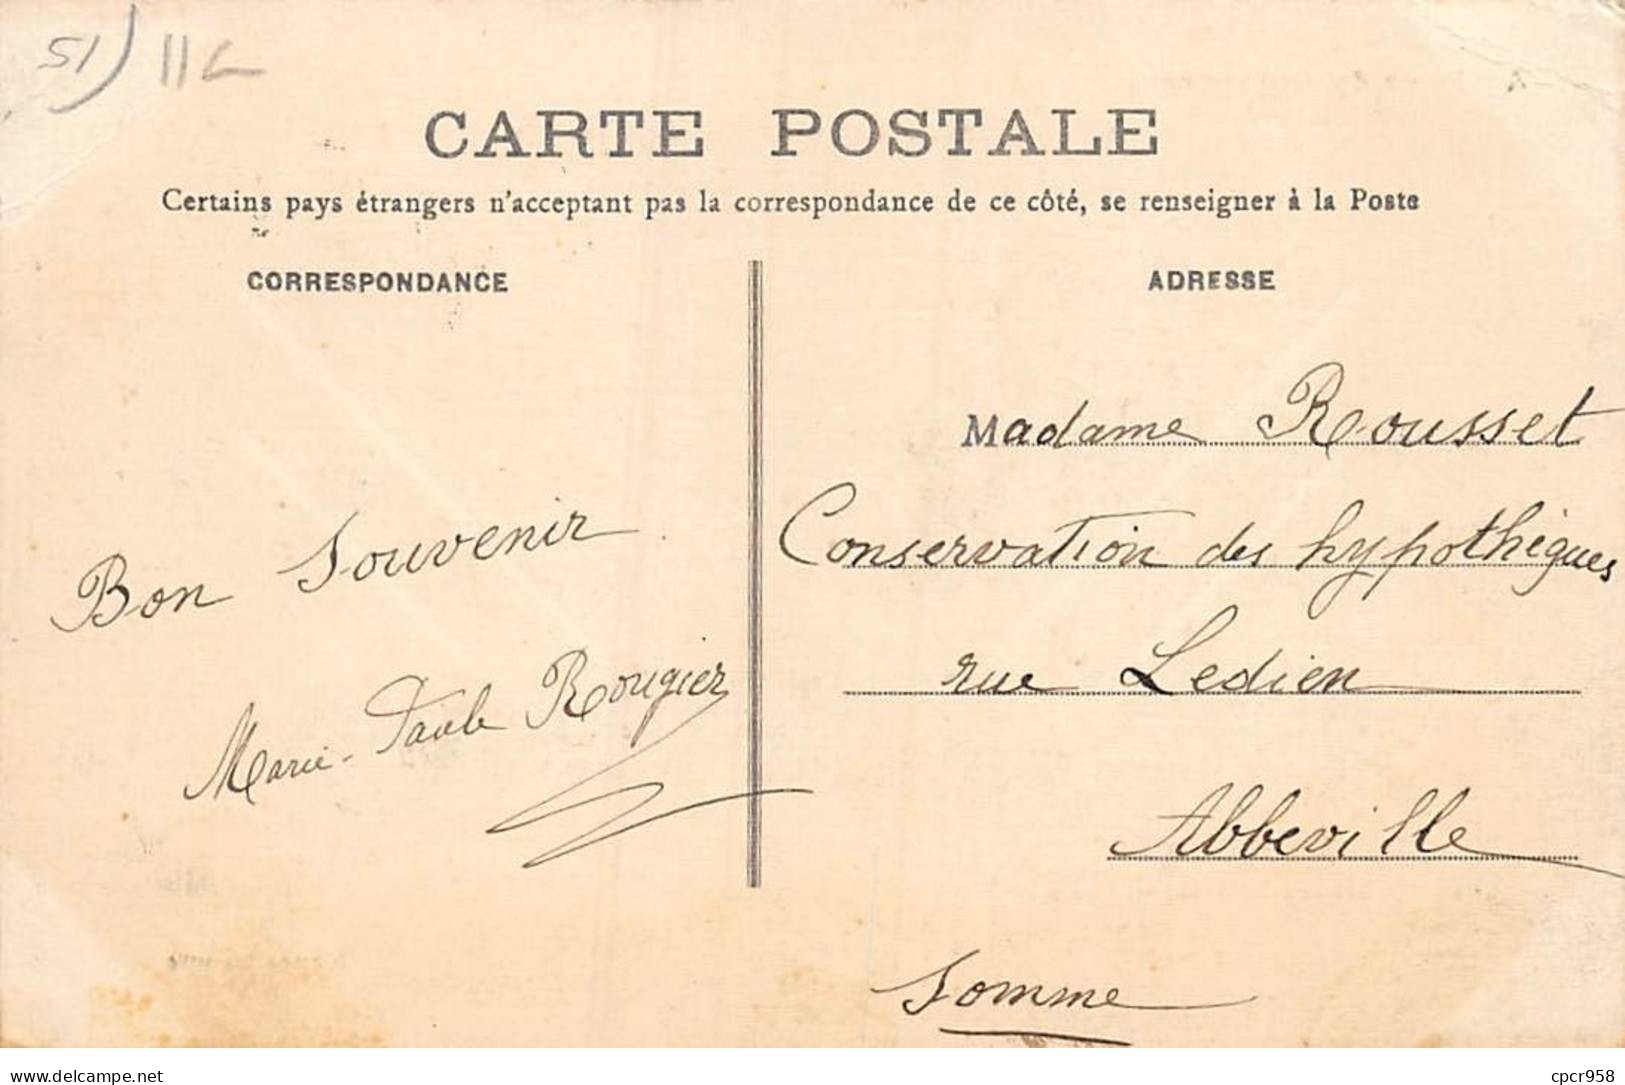 51) 116
CARTE POSTALE
Certains pays étrangers n'acceptant pas la correspondance de ce côté, se renseigner à la Poste
CORRESPONDANCE
ADRESSE
Bon Souvenir
Marie-Paule Rougier
Madame Rousset
Conservation des hypothèques
rue Ledien
Abbeville
Somme
delcampe.net
cpcr958